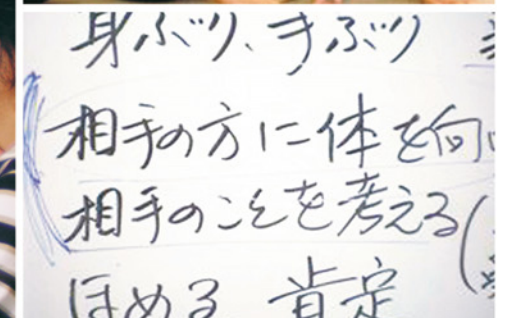 身ぶり、手ぶり
相手の方に体を向
相手のことを考える(
ほめる 肯定